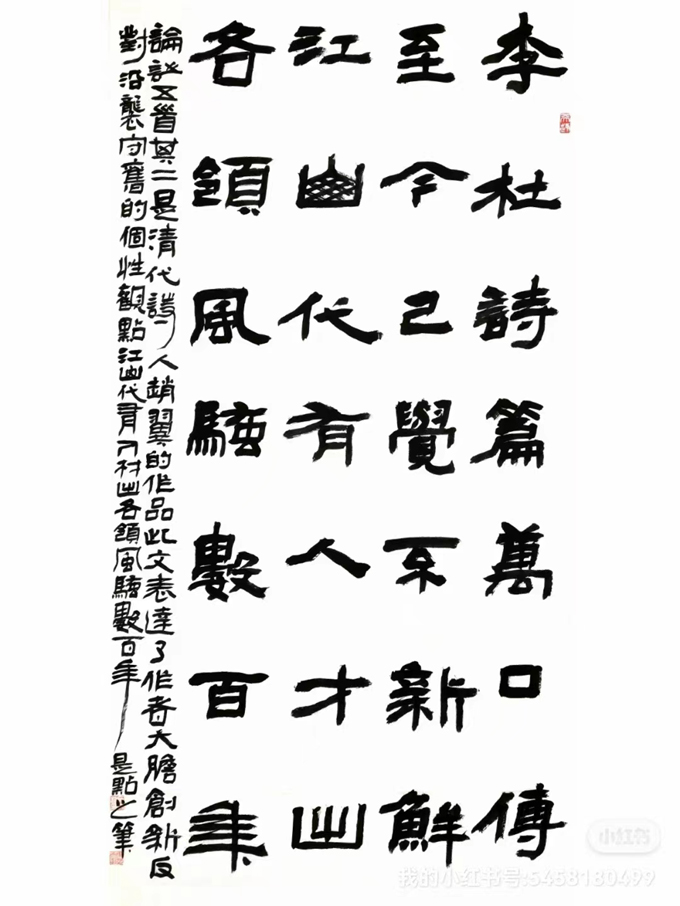 李杜詩篇萬口傳
至今已覺不新鮮
江山代有人才出
各領風騷數百年
論詩五首其二是清代詩人趙翼的作品此文表達了作者大膽創新反
對沿襲守舊的個性觀點江山代有人材出各領風騷數百年 是點之筆
小红书
我的小红书号:5458180499